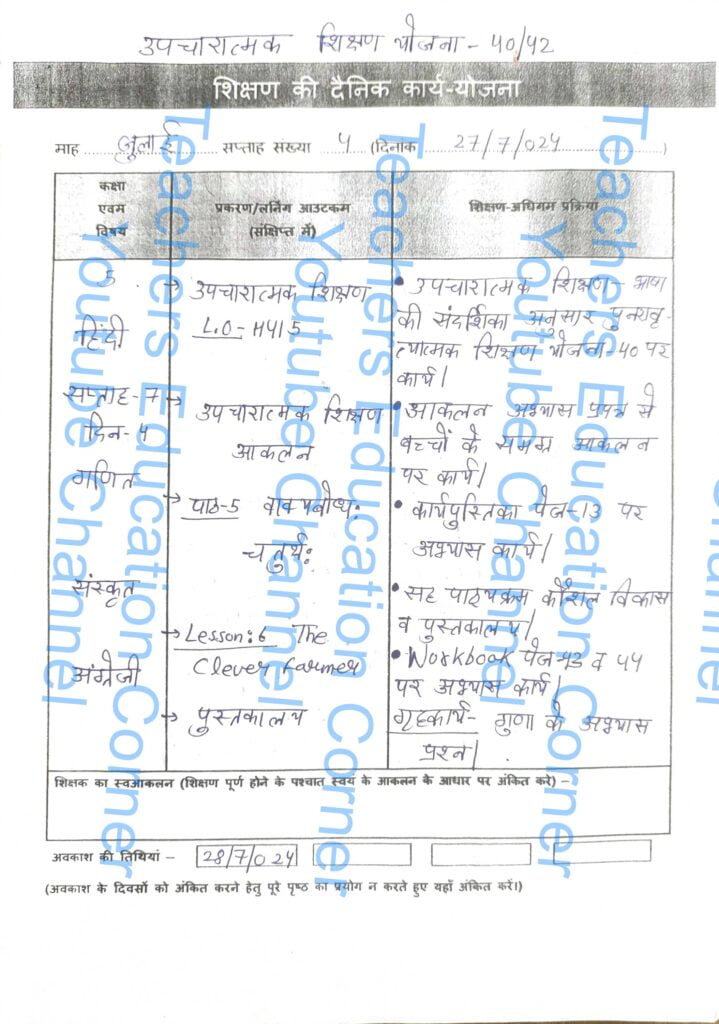 उपचारात्मक शिक्षण योजना - 40/42
शिक्षण की दैनिक कार्य-योजना
माह जुलाई सप्ताह संख्या 4 (दिनांक 27/7/024)
कक्षा
एवम
विषय
प्रकरण/लर्निंग आउटकम
(संक्षिप्त में)
शिक्षण-अधिगम प्रक्रिया
5
हिंदी
सप्ताह-7
दिन-4
गणित
संस्कृत
अंग्रेजी
→ उपचारात्मक शिक्षण
L.O-H415
→ उपचारात्मक शिक्षण
आकलन
→ पाठ-5 वाक्यबोधः
चतुर्थः
→ Lesson:6 The
Clever Farmer
→ पुस्तकालय
• उपचारात्मक शिक्षण- भाषा
की संदर्शिका अनुसार पुनरावृ-
त्यात्मक शिक्षण योजना-40 पर
कार्य।
• आकलन अभ्यास प्रपत्र से
बच्चों के समग्र आकलन
पर कार्य।
• कार्यपुस्तिका पेज-13 पर
अभ्यास कार्य।
• सह पाठ्यक्रम कौशल विकास
व पुस्तकालय।
• Workbook पेज-43 व 44
पर अभ्यास कार्य।
गृहकार्य- गुणा के अभ्यास
प्रश्न।
शिक्षक का स्वआकलन (शिक्षण पूर्ण होने के पश्चात स्वयं के आकलन के आधार पर अंकित करे) –
अवकाश की तिथियां – 28/7/024
(अवकाश के दिवसों को अंकित करने हेतु पूरे पृष्ठ का प्रयोग न करते हुए यहाँ अंकित करें।)
Teachers Education Corner
Youtube Channel
Teachers Education Corner
Youtube Channel
Teachers Education Corner
Youtube Channel